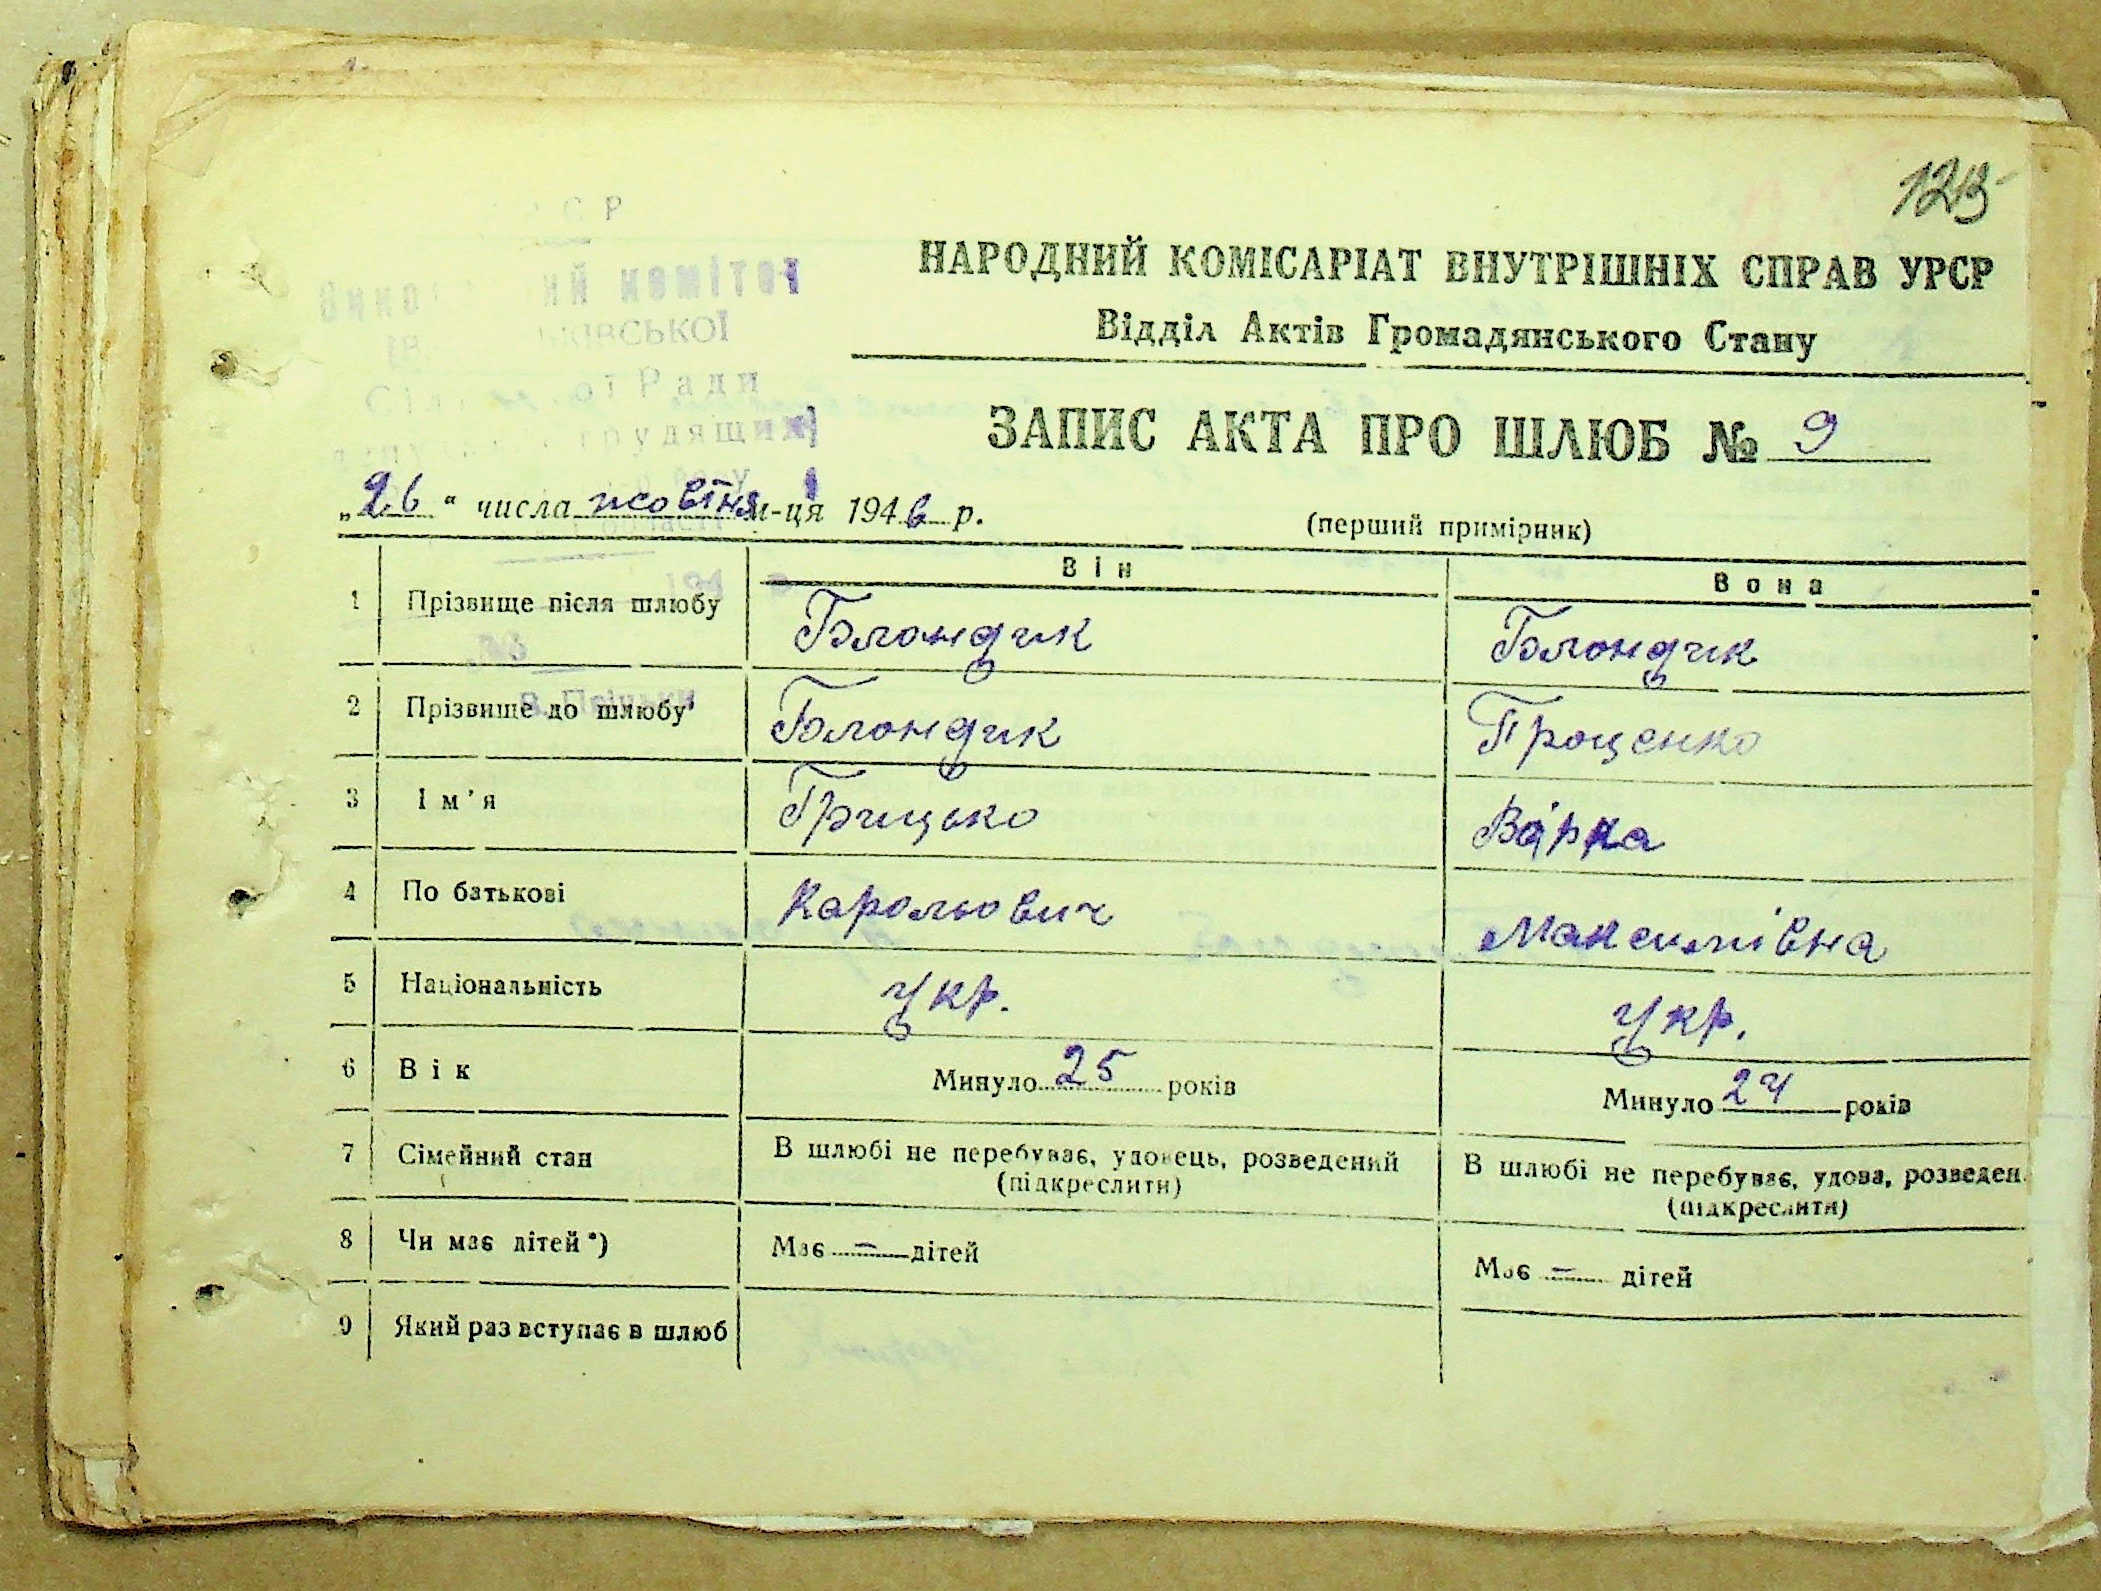 С Р
комітет
КІВСЬКОЇ
ої Ради
трудящих
НАРОДНИЙ КОМІСАРІАТ ВНУТРІШНІХ СПРАВ УРСР
Відділ Актів Громадянського Стану
ЗАПИС АКТА ПРО ШЛЮБ № 9
„26“ числа жовтня м-ця 1946 р.
(перший примірник)
Він Вона
1 Прізвище після шлюбу Блондик Блондик
2 Прізвище до шлюбу Блондик Проценко
3 Ім'я Грицько Варка
4 По батькові Карольович Максимівна
5 Національність Укр. Укр.
6 Вік Минуло 25 років Минуло 24 років
7 Сімейний стан В шлюбі не перебуває, удовець, розведений В шлюбі не перебуває, удова, розведен.
(підкреслити) (підкреслити)
8 Чи має дітей*) Має – дітей Має – дітей
9 Який раз вступає в шлюб